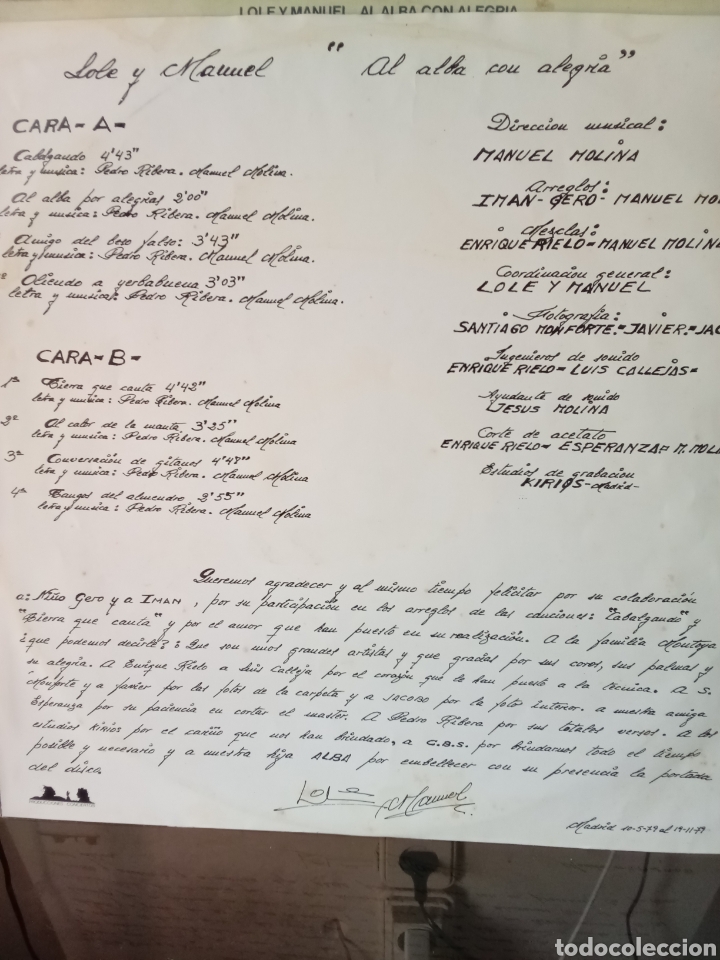 LOLE Y MANUEL AL ALBA CON ALEGRIA
Lole y Manuel "Al alba con alegria"
CARA-A-
Cabalgando 4'43"
letra y musica: Pedro Ribera. Manuel Molina.
Al alba por alegrias 2'00"
letra y musica: Pedro Ribera. Manuel Molina.
Amigo del beso falso: 3'43"
letra y musica: Pedro Ribera. Manuel Molina.
Oliendo a yerbabuena 3'03"
letra y musica: Pedro Ribera. Manuel Molina.
CARA-B-
1ª Tierra que canta 4'42"
letra y musica: Pedro Ribera. Manuel Molina
2ª Al calor de la manta 3'25"
letra y musica: Pedro Ribera. Manuel Molina
3ª Conversación de gitanos 4'47"
letra y musica: Pedro Ribera. Manuel Molina
4ª Tangos del almendro 2'55"
letra y musica: Pedro Ribera. Manuel Molina
Direccion musical:
MANUEL MOLINA
Arreglos:
IMAN-GERO-MANUEL MO
Mezclas:
ENRIQUE RIELO-MANUEL MOLINA
Coordinacion general:
LOLE Y MANUEL
Fotografia:
SANTIAGO MONFORTE-JAVIER-JAC
Ingenieros de sonido
ENRIQUE RIELO-LUIS CALLEJAS-
Ayudante de sonido
JESUS MOLINA
Corte de acetato
ENRIQUE RIELO-ESPERANZA-M. MOL
Estudios de grabacion
KIRIOS-Madrid-
Queremos agradecer y al mismo tiempo felicitar por su colaboración
a: Niño Gero y a IMAN, por su participación en los arreglos de las canciones: "Cabalgando" y
"Tierra que canta" y por el amor que han puesto en su realización. A la familia Montoya
¿que podemos decirle?: Que son unos grandes artistas y que gracias por sus coros, sus palmas y
su alegria. A Enrique Rielo a Luis Calleja por el corazón que le han puesto a la técnica. A S.
Monforte y a Javier por las fotos de la carpeta y a JACOBO por la foto interior. a nuestra amiga
Esperanza por su paciencia en cortar el master. A Pedro Ribera por sus totales versos. A los
estudios Kirios por el cariño que nos han brindado, a C.B.S. por brindarnos todo el tiempo
posible y necesario y a nuestra hija ALBA por embellecer con su presencia la portada
del disco.
Lole Manuel
Madrid 10-5-79 al 19-11-79
todocoleccion